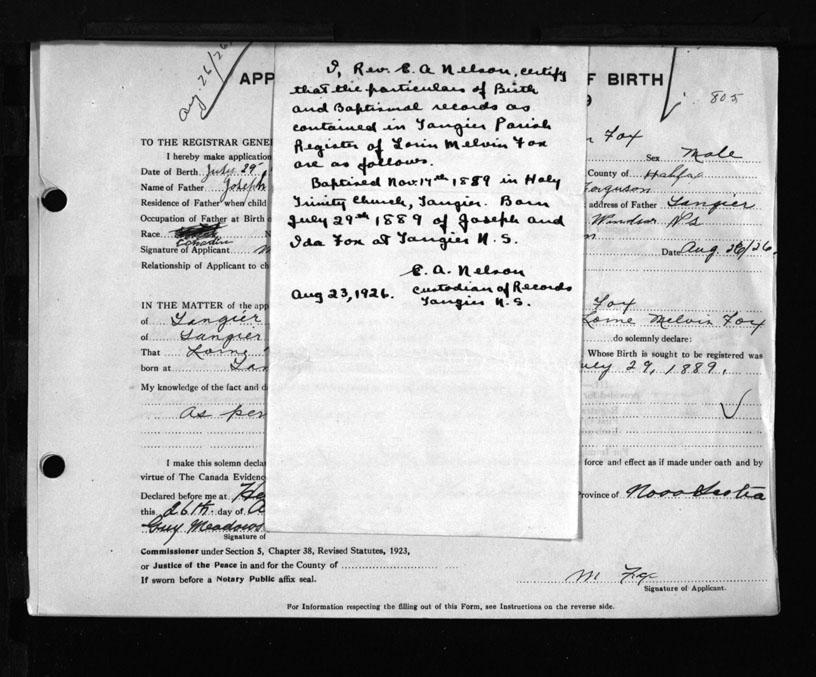 aug. 26/26
APP
F BIRTH
9
805
I, Rev. E. A. Nelson, certify
that the particulars of Birth
and Baptismal records as
contained in Tangier Parish
Register of Lorin Melvin Fox
are as follows.
Baptised Nov. 17th 1889 in Holy
Trinity Church, Tangier. Born
July 29th 1889 of Joseph and
Ida Fox at Tangier N.S.
E. A. Nelson
Aug 23, 1926. custodian of Records
Tangier N.S.
TO THE REGISTRAR GENE
Fox
I hereby make application
Sex Male
Date of Birth July 29
County of Halifax
Name of Father Joseph
Ferguson
Residence of Father when child
address of Father Tangier
Occupation of Father at Birth
Windsor N S
Race Canadian N
Signature of Applicant M
Date Aug 26/26.
Relationship of Applicant to ch
IN THE MATTER of the app
Fox
of Tangier
Lorne Melvin Fox
of Tangier
do solemnly declare:
That Lorne
Whose Birth is sought to be registered was
born at Tan
uly 29, 1889.
My knowledge of the fact and d
as per
I make this solemn declar
force and effect as if made under oath and by
virtue of The Canada Evidenc
Declared before me at Ha
Province of Nova Scotia
this 26th day of A
Guy Meadows
Signature of
Commissioner under Section 5, Chapter 38, Revised Statutes, 1923,
or Justice of the Peace in and for the County of
M Fox
If sworn before a Notary Public affix seal.
Signature of Applicant.
For Information respecting the filling out of this Form, see Instructions on the reverse side.